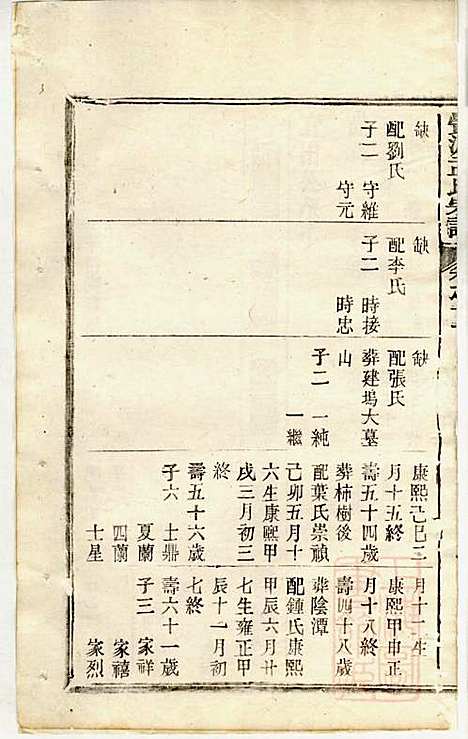 缺
配劉氏
子二 守維
守元
缺
配李氏
子二 時接
時忠
缺
配張氏
葬建塢大墓
山
子二 一純
一繼
康熙己巳三
月十五終
壽五十四歲
葬柿樹後
配葉氏崇禎
己卯五月十
六生康熙甲
戌三月初三
終
壽五十六歲
子六 士鼎
夏蘭
四蘭
士星
月十一生
康熙甲申正
月十八終
壽四十八歲
葬陰潭
配鍾氏康熙
甲辰六月廿
七生雍正甲
辰十一月初
七終
壽六十一歲
子三 家祥
家禧
家烈